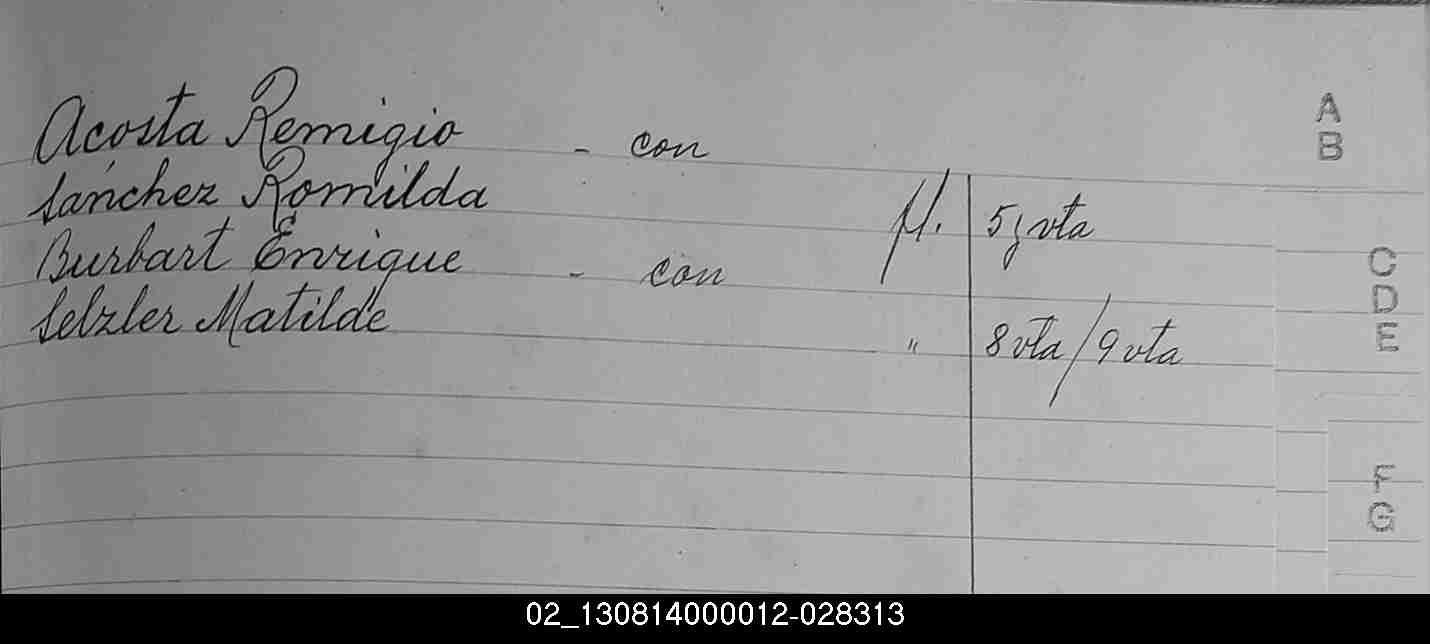 Acosta Remigio - con
Sánchez Romilda fl. 5 vta
Burbart Enrique - con
Selzler Matilde " 8 vta/9 vta
A
B
C
D
E
F
G
02_130814000012-028313